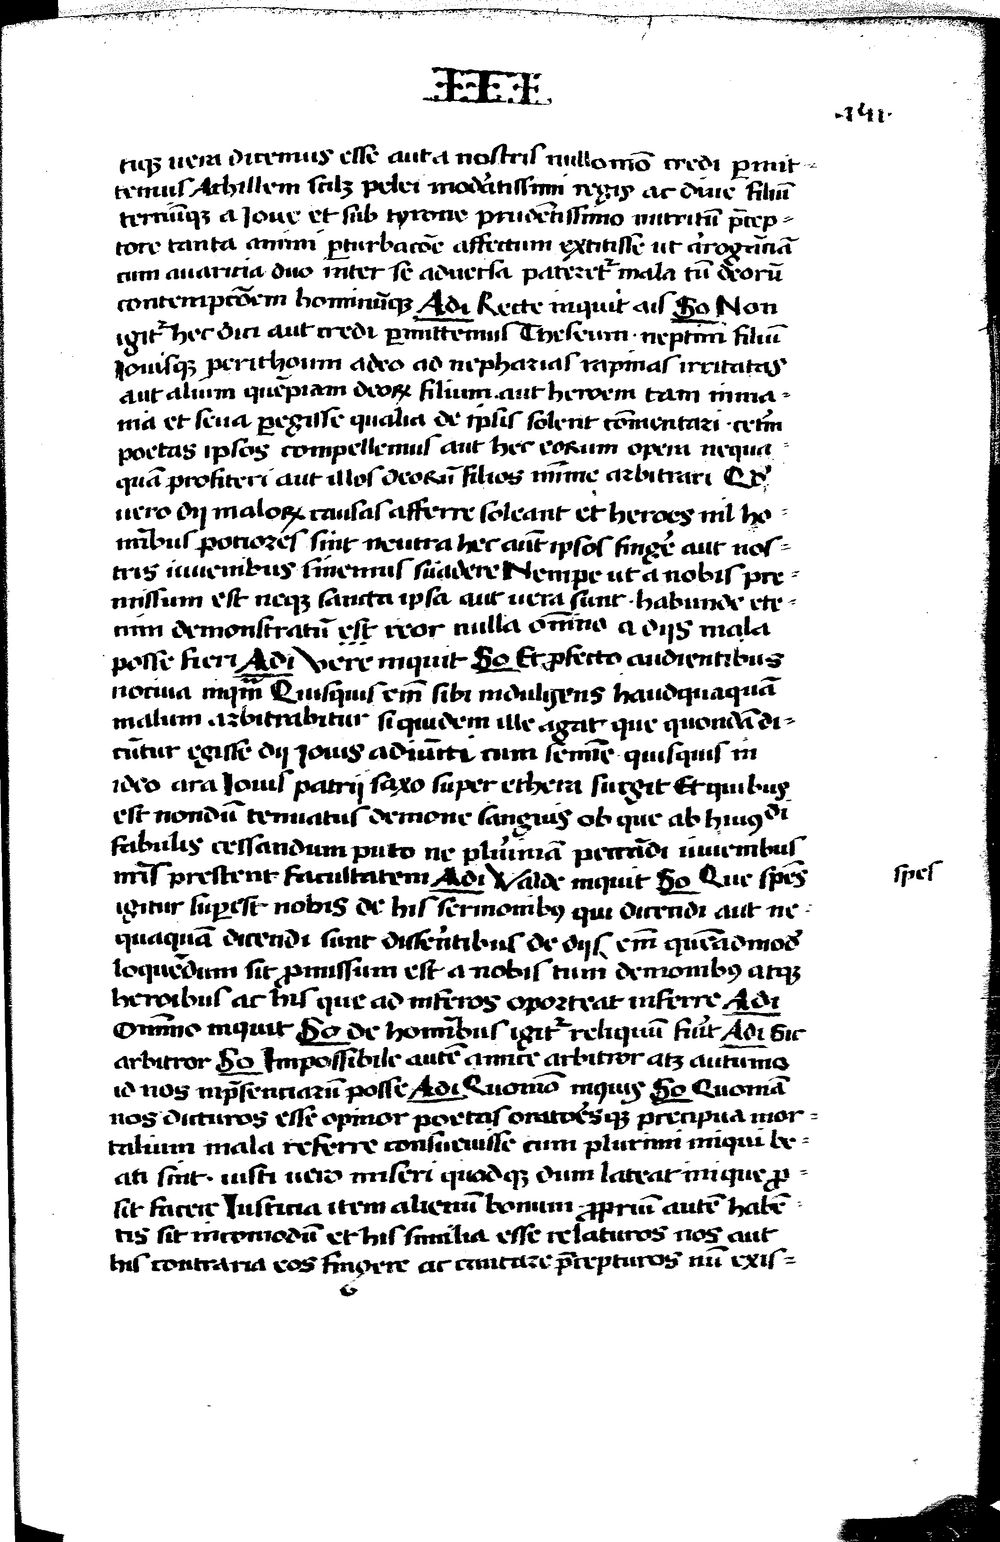 III
·141·
tiqꝫ uera dicemus esse aut a nostris nullo mō credi ꝑmit-
temus Achillem scilꝫ pelei modẽtissimi regis ac diue filiū
terniūqꝫ a Ioue et sub tyrone prudētissimo nutritū p̄cep-
tore tanta animi ꝑturbacōe affectum extitisse ut arrogāciā
cum auaricia duo inter se aduersa pateretr mala tū deorū
contemptōem hominūqꝫ Adi Recte inquit ais So Non
igitr hec dici aut credi ꝑmittemus Theseum · neptuni filiū
Iouisqꝫ perithoum adeo ad nepharias rapinas irritatas
aut alium quēpiam deoꝝ filium aut heroem tam inma-
nia et seua ꝑegisse qualia de ipsis solent cōmentari · ceterm
poetas ipsos compellemus aut hec eorum opera nequa-
quā profiteri aut illos deorū filios mīme arbitrari Qđ
uero dij maloꝝ causas afferre soleant et heroes nil ho-
minibus pociores sint neutra hec aut ipsos fingere aut nos-
tris iuuenibus sinemus suadere Nempe ut a nobis pre-
missum est neqꝫ sancta ipsa aut uera sunt · habunde ete-
nim demonstratū est reor nulla omīno a dijs mala
posse fieri Adi Vere inquit So Et ꝓfecto audientibus
nociua inqm̄ Quisquis em̄ sibi indulgens haudquaquā
malum arbitrabitur siquidem ille agat que quondā di-
cūtur egisse dij Iouis adiūcti cum semīe quisquis in
ideo ara Iouis patrij saxo super ethera surgit Et quibus
est nondū tenuatus demone sanguis ob que ab huiꝰdi
fabulis cessandum puto ne plurimā peccādi iuuenibus
nris prestent facultatem Adi Valde inquit So Que spēs
spes
igitur supest nobis de his sermonibꝰ qui dicendi aut ne-
quaquā dicendi sunt disserētibus de dijs em̄ quēadmodū
loquēdum sit ꝓmissum est a nobis tum demonibꝰ atqꝫ
heroibus ac his que ad inferos oporteat inferre Adi
Omīno inquit So de hominibus igitr reliquū fiūt Adi Sic
arbitror So Impossibile autē amice arbitror atꝫ autumo
id nos inp̄senciarū posse Adi Quomō inquis So Quomā
nos dicturos esse opinor poetas oratoresqꝫ precipua mor-
talium mala referre consueuisse cum plurimi iniqui be-
ati sint · iusti uero miseri quodqꝫ dum lateat inique ꝓ-
sit facere Iusticia item alienū bonum ꝓpriū autē habē-
tis sit incōmodū et his similia esse relaturos nos aut
his contraria eos fingere ac cantare p̄cepturos nū exis-